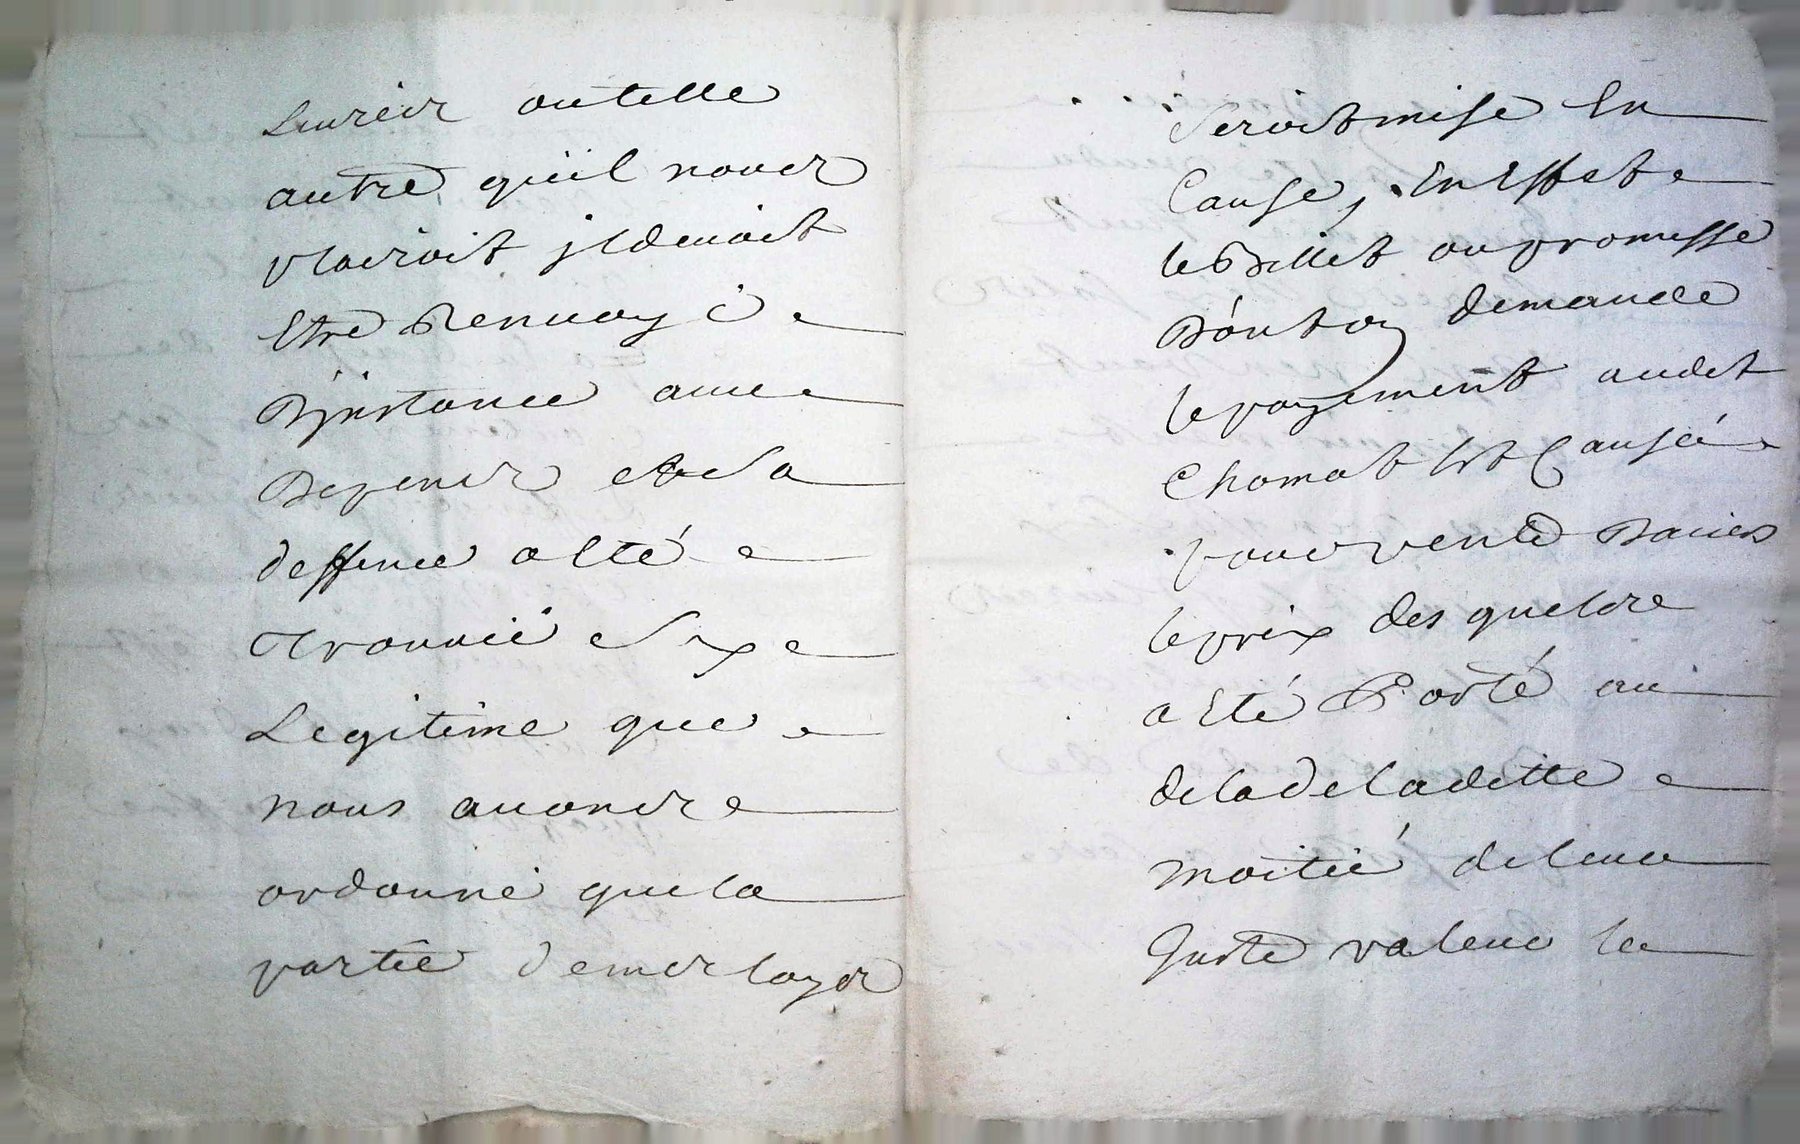 Livres ou telle
autre qu'il nous
plairoit il devoit
Etre Renvoyé
D'jnstance avec
Depens et sa
deffence a eté
trouvée si
Legitime que
nous avons
ordonné que la
partie demerloyer
seroit mise En
Cause, En Effet
le Billet ou promesse
Dont on demande
le payement audit
Chomat Est Causée
pour vente Daciers
le prix desquels
a Eté Porté au
dela de la ditte
moitié de leur
Juste valeur le